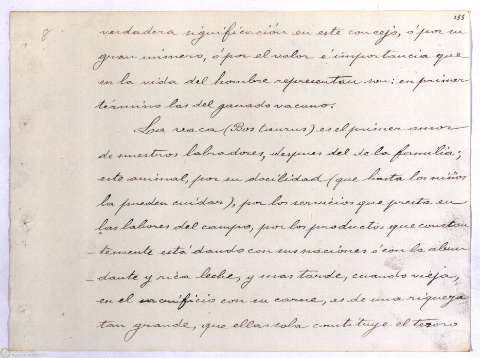 8
155
verdadera significación en este concejo, ó por su
gran número, ó por el valor é importancia que
en la vida del hombre representan son: en primer
término las del ganado vacuno.
La vaca (Bos taurus) es el primer amor
de nuestros labradores, despues del de la familia;
este animal, por su docilidad (que hasta los niños
la pueden cuidar), por los servicios que presta en
las labores del campo, por los productos que constan-
-temente está dando con sus naciones ó con la abun-
-dante y rica leche, y mas tarde, cuando vieja,
en el sacrificio con su carne, es de una riqueza
tan grande, que ella sola constituye el tesoro